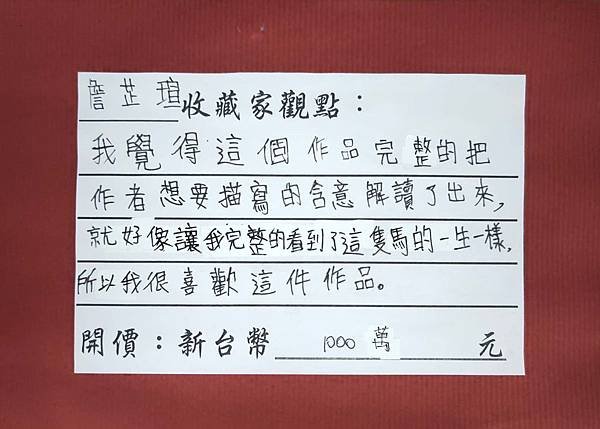 詹芷瑄收藏家觀點：
我覺得這個作品完整的把
作者想要描寫的含意解讀了出來，
就好像讓我完整的看到了這隻馬的一生一樣，
所以我很喜歡這件作品。
開價：新台幣 1000 萬 元